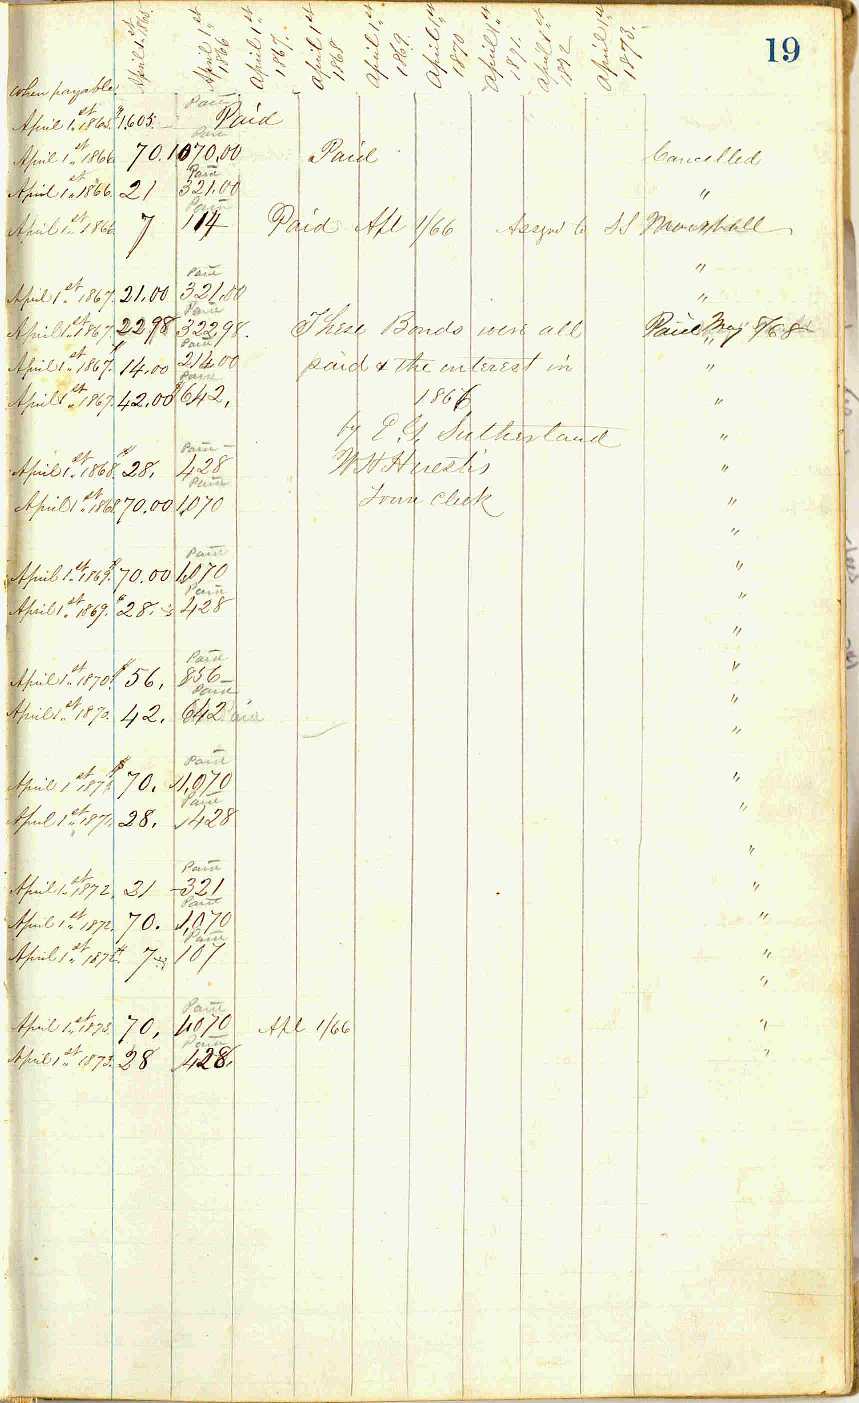 19
when payable. April 1st 1865. April 1st 1866 April 1st 1867. April 1st 1868 April 1st 1869. April 1st 1870 April 1st 1871. April 1st 1872 April 1st 1873.
Paid
April 1st 1865. $1,605. Paid
Paid
April 1st 1866 70. 1070,00 Paid Cancelled
Paid
April 1st 1866. 21 321.00 "
Paid
April 1st 1866 7 114 Paid Apl 1/66 Assgnd to SS Marshall
"
Paid
April 1st 1867. 21.00 321.00 "
Paid
April 1st 1867. 2298 32298. These Bonds were all Paid May 8/68
Paid "
April 1st 1867. 14.00 214.00 paid & the interest in "
Paid
April 1st 1867. 42.00 $642, 1866 "
by E. G. Sutherland "
Paid
April 1st 1868. $28. 428 W H "
Paid
April 1st 1868 70.00 1,070 Town Clerk "
"
Paid
April 1st 1869. $70.00 1,070 "
Paid
April 1st 1869. $28. 428 "
"
Paid
April 1st 1870. $56, 856 "
Paid
April 1st 1870. 42. 642 Paid "
"
Paid
April 1st 1871. $70. 1,070 "
Paid
April 1st 1871. 28. 428 "
"
Paid
April 1st 1872. 21 321 "
Paid
April 1st 1872. 70. 1,070 "
Paid
April 1st 1872. 7 107 "
"
Paid
April 1st 1873. 70, 1,070 Apl 1/66 "
Paid
April 1st 1873. 28 428. "